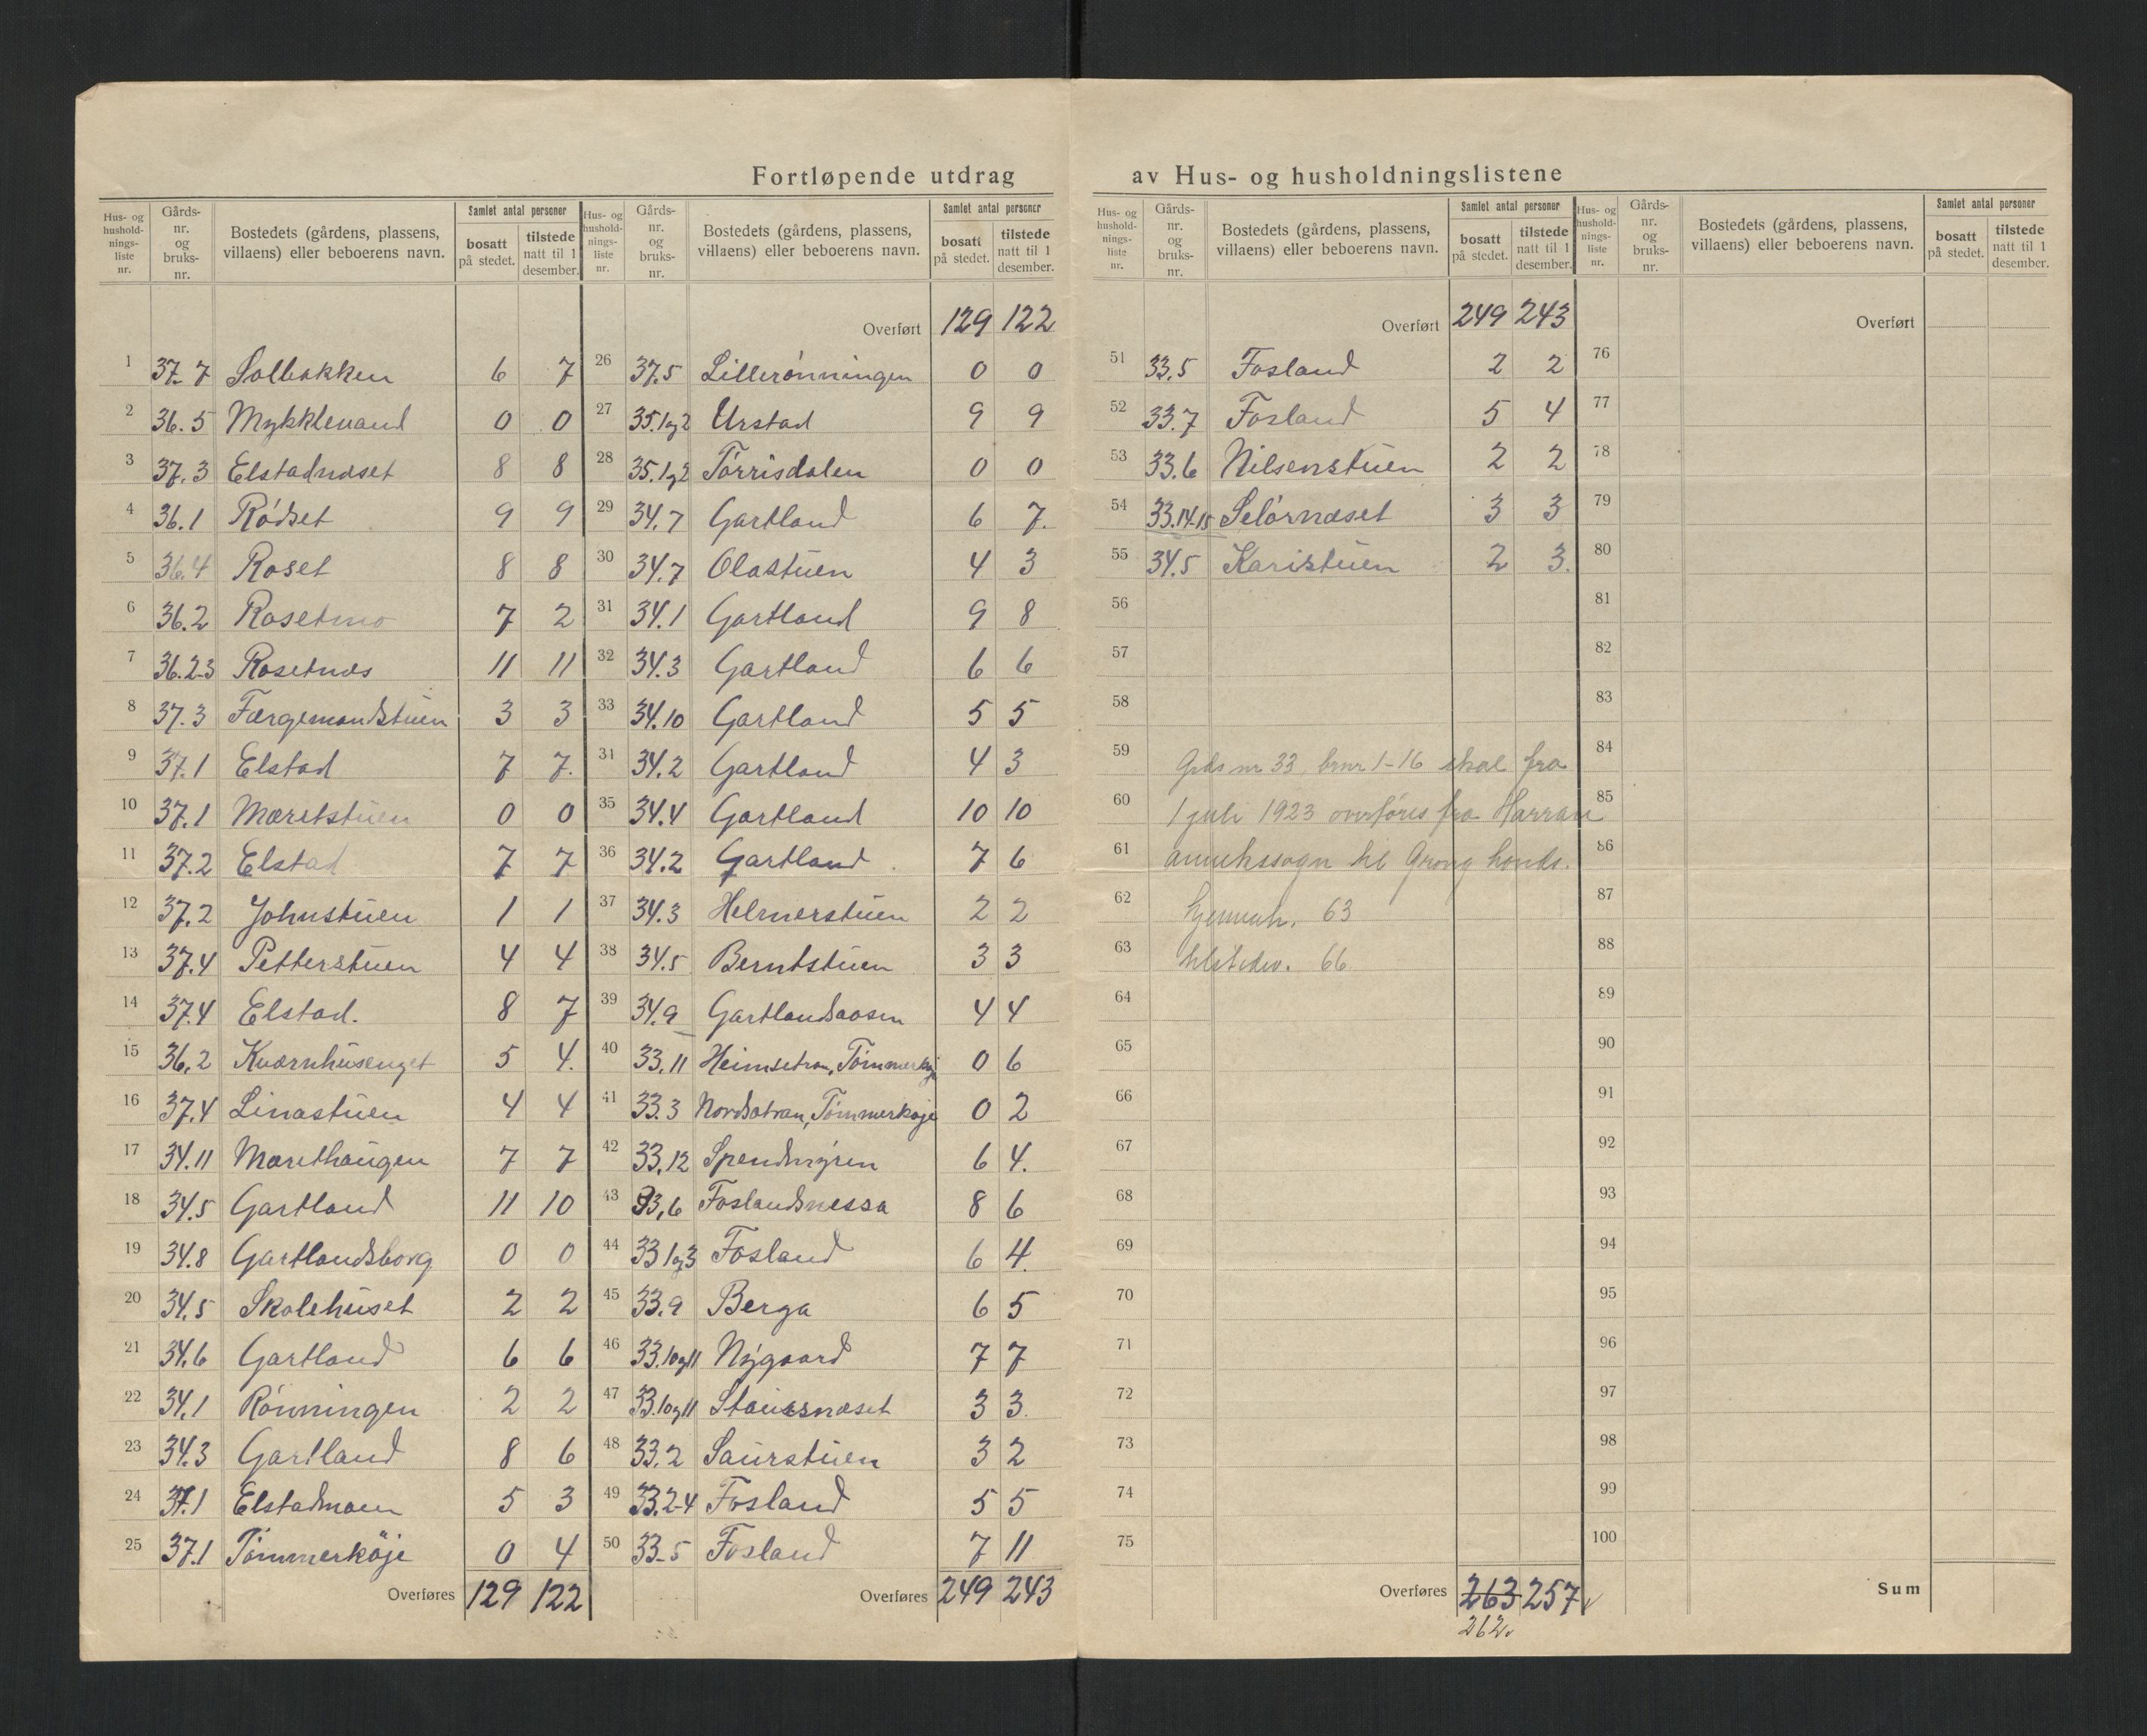 Fortløpende utdrag av Hus- og husholdningslistene
Hus- og hushold- nings- liste nr. | Gårds- nr. og bruks- nr. | Bostedets (gårdens, plassens, villaens) eller beboerens navn. | Samlet antal personer | bosatt på stedet. | tilstede natt til 1 desember.
1 37.7 Solbakken 6 7
2 36.5 Mykklevand 0 0
3 37.3 Elstadnæset 8 8
4 36.1 Rødset 9 9
5 36.4 Roset 8 8
6 36.2 Rosetmo 7 2
7 36.2-3 Rosetnæs 11 11
8 37.3 Færgemandstuen 3 3
9 37.1 Elstad 7 7.
10 37.1 Mæretstuen 0 0
11 37.2 Elstad 7 7
12 37.2 Johnstuen 1 1
13 37.4 Petterstuen 4 4
14 37.4 Elstad. 8 7
15 36.2 Kværnhusenget 5 4.
16 37.4 Linastuen 4 4
17 34.11 Mærethaugen 7 7
18 34.5 Gartland 11 10
19 34.8 Gartlandsborg 0 0
20 34.5 Skolehuset 2 2
21 34.6 Gartland 6 6
22 34.1 Rønningen 2 2
23 34.3 Gartland 8 6
24 37.1 Elstadmoen 5 3
25 37.1 Tømmerkøje 0 4
Overføres 129 122
Hus- og hushold- nings- liste nr. | Gårds- nr. og bruks- nr. | Bostedets (gårdens, plassens, villaens) eller beboerens navn. | Samlet antal personer | bosatt på stedet. | tilstede natt til 1 desember.
Overført 129 122
26 37.5 Lillerønningen 0 0
27 35.1og2 Urstad 9 9
28 35.1og2 Tørrisdalen 0 0
29 34.7 Gartland 6 7.
30 34.7 Olastuen 4 3
31 34.1 Gartland 9 8
32 34.3 Gartland 6 6
33 34.10 Gartland 5 5
34 34.2 Gartland 4 3
35 34.4 Gartland 10 10
36 34.2 Gartland 7 6
37 34.3 Helmerstuen 2 2
38 34.5 Berntstuen 3 3
39 34.9 Gartlandsaasen 4 4
40 33.11 Heimsetran, Tømmerkøje 0 6
41 33.3 Nordsetran, Tømmerkøje 0 2
42 33.12 Spendmyren 6 4.
43 33.6 Foslandsnessa 8 6
44 33 1og3 Fosland 6 4.
45 33.9 Berga 6 5
46 33.10og11 Nygaard 7 7
47 33.10og11 3 3.
48 33.2 Saurstuen 3 2
49 33.2-4 Fosland 5 5
50 33-5 Fosland 7 11
Overføres 249 243
Hus- og hushold- nings- liste nr. | Gårds- nr. og bruks- nr. | Bostedets (gårdens, plassens, villaens) eller beboerens navn. | Samlet antal personer | bosatt på stedet. | tilstede natt til 1 desember.
Overført 249 243
51 33.5 Fosland 2 2
52 33.7 Fosland 5 4
53 33.6 Nilsenstuen 2 2
54 33.14-15 Selørnæset 3 3
55 34.5 Karistuen 2 3.
56
57
58
59 Gds nr 33, brnr 1-16 skal fra
60 1 juli 1923 overføres fra Harran
61 annekssogn til Grong hovds.
62 hjemmeh. 63
63 tilstedev. 66
64
65
66
67
68
69
70
71
72
73
74
75
Overføres 263 257
262
Hus- og hushold- nings- liste nr. | Gårds- nr. og bruks- nr. | Bostedets (gårdens, plassens, villaens) eller beboerens navn. | Samlet antal personer | bosatt på stedet. | tilstede natt til 1 desember.
Overført
76
77
78
79
80
81
82
83
84
85
86
87
88
89
90
91
92
93
94
95
96
97
98
99
100
Sum